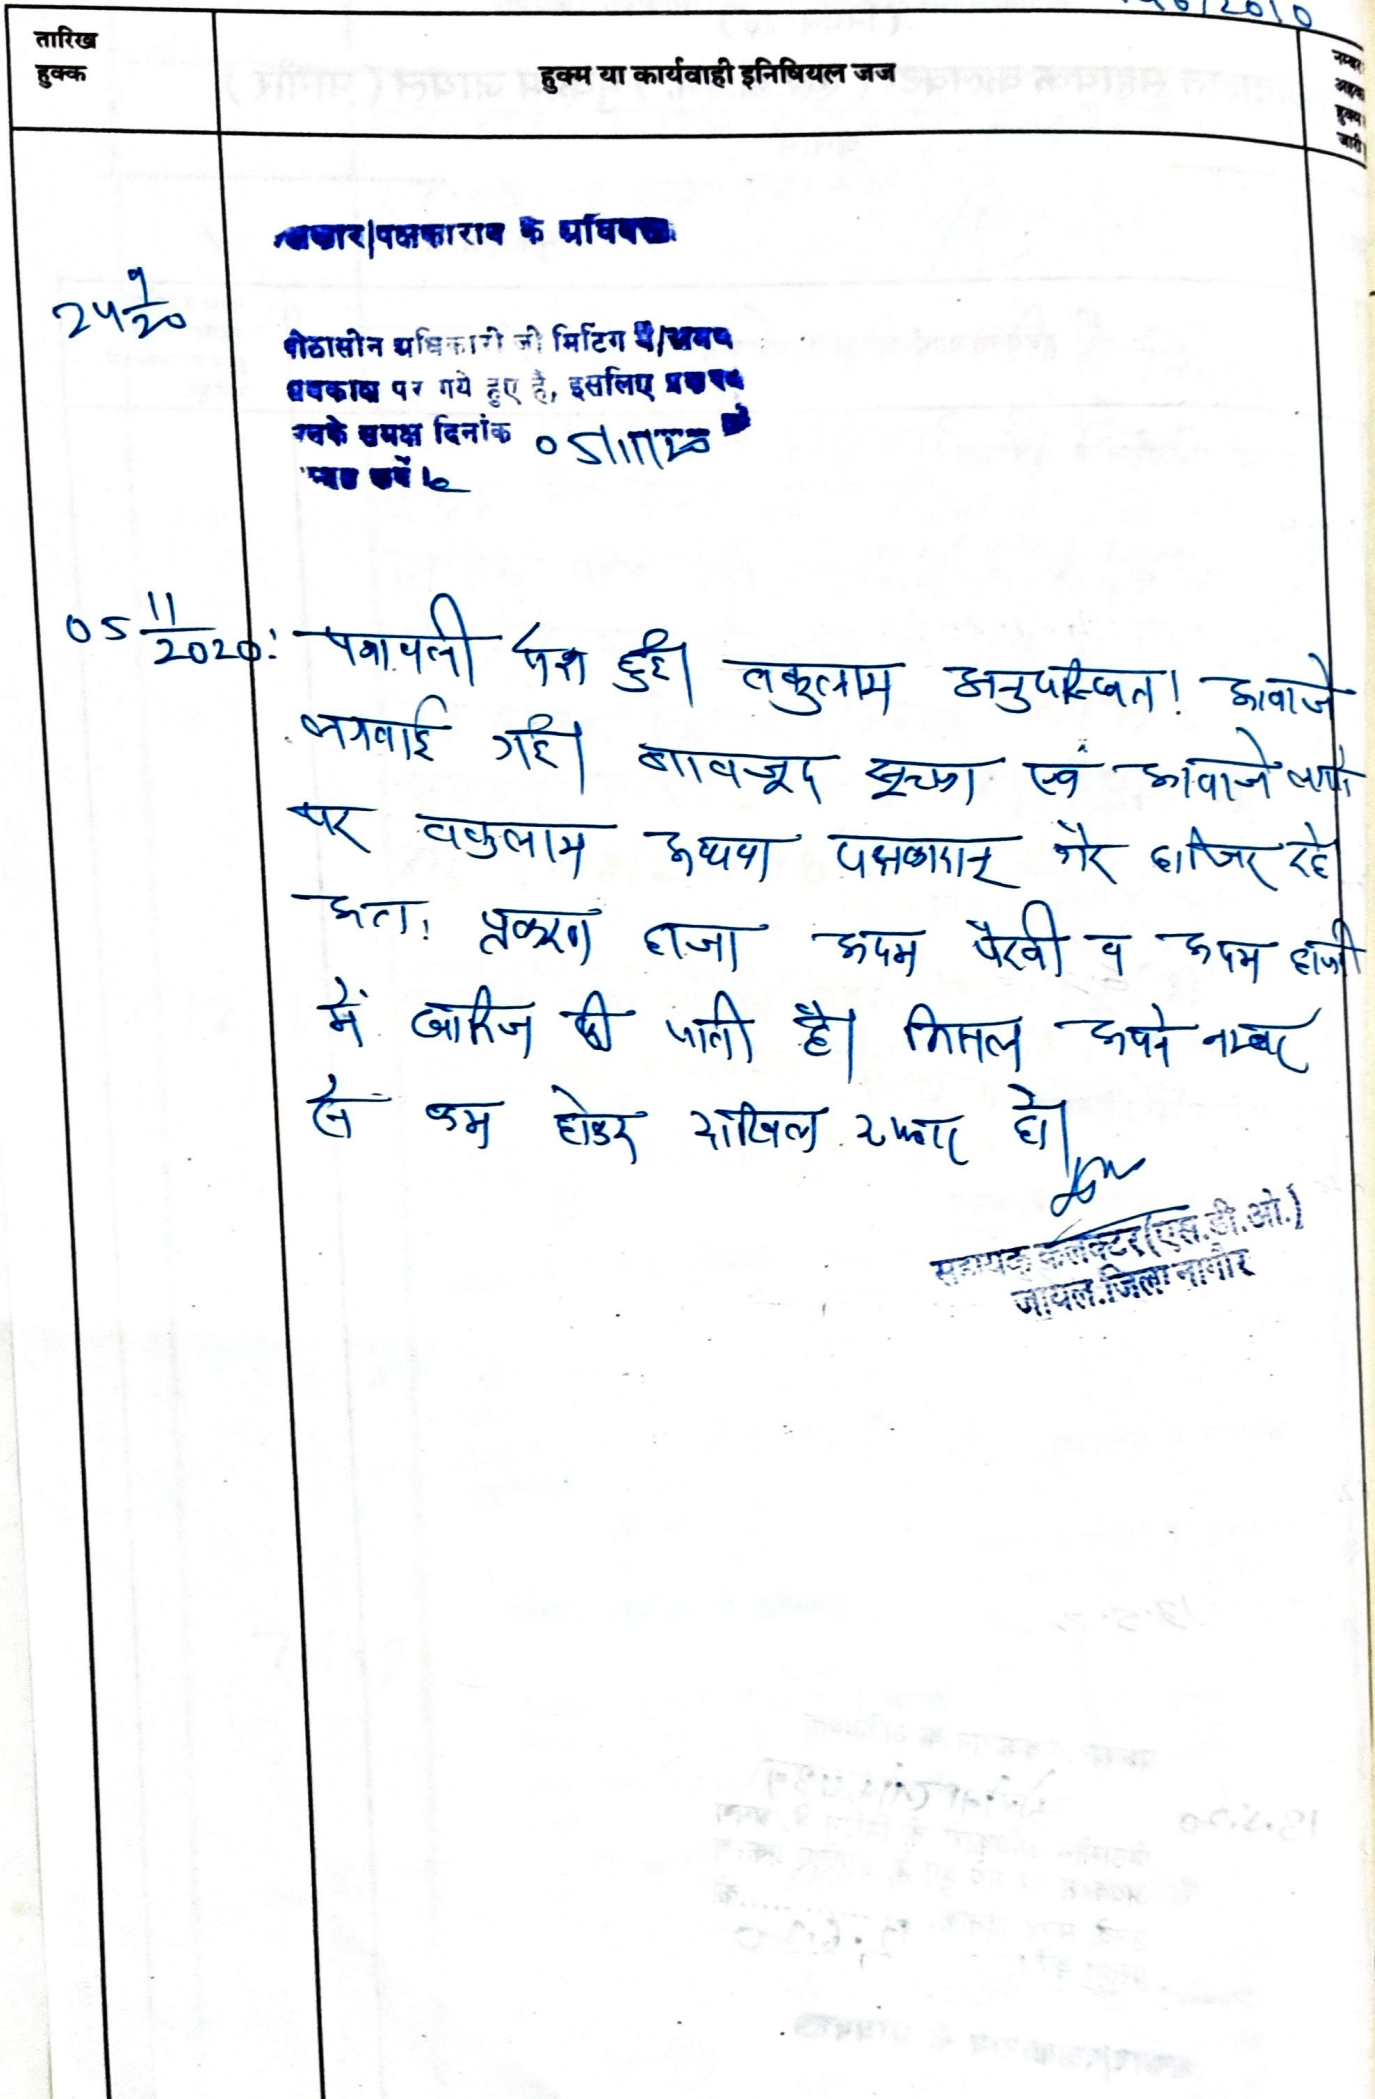 /2010
तारिख
हुक्क
हुक्म या कार्यवाही इनिषियल जज
नम्बर
हुक्म
जारी
पक्षकारान के
24 9/20
पीठासीन अधिकारी जी मिटिंग में/
अवकाश पर गये हुए है, इसलिए
उनके समक्ष दिनांक 05/11/20 को
05 11/2020: पत्रावली पेश हुई। वकुलाय अनुपस्थित। आवाजे
लगवाई गई। बावजूद सूचना एवं आवाजे लगाने
पर वकुलाय अथवा पक्षकारान् गैर हाजिर रहे
अतः प्रकरण हाजा अदम पैरवी व अदम हाजरी
में खारिज की जाती है। मिसल अपने नम्बर
से कम होकर दाखिल दफ्तर हो।
सहायक कलक्टर(एस.डी.ओ.)
जायल.जिला नागौर